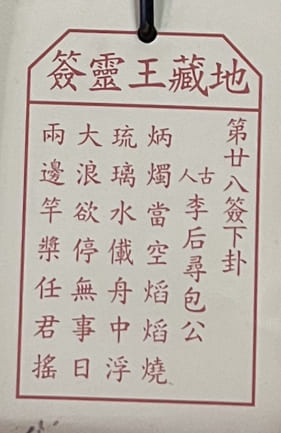 地藏王靈簽
第廿八簽下卦
古人 李后尋包公
炳燭當空熖熖燒
琉璃水儎舟中浮
大浪欲停無事日
兩邊竿槳任君搖